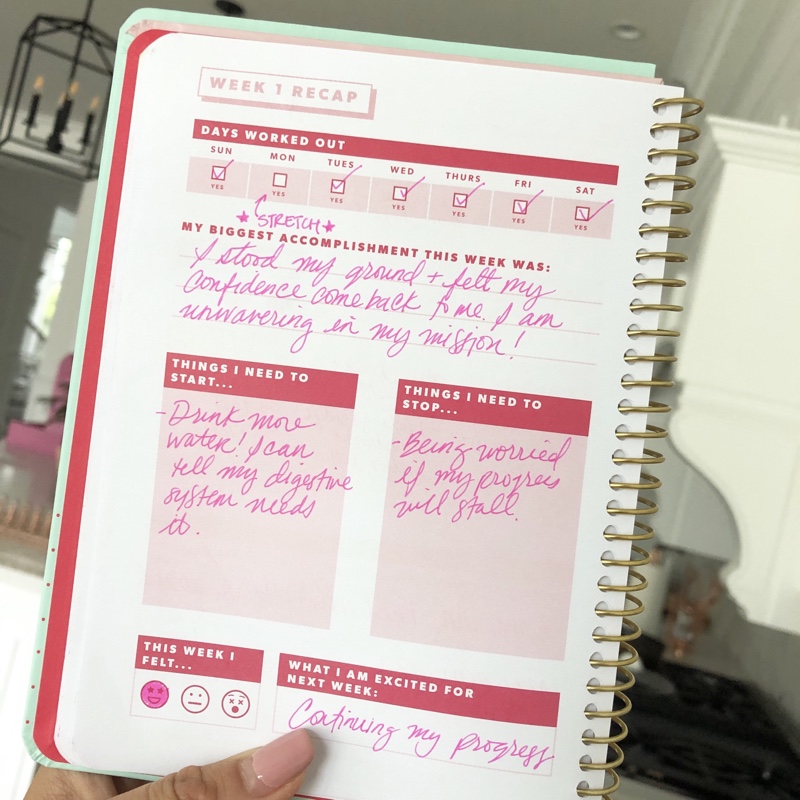 WEEK 1 RECAP
DAYS WORKED OUT
SUN MON TUES WED THURS FRI SAT
YES YES YES YES YES YES YES
★STRETCH★
MY BIGGEST ACCOMPLISHMENT THIS WEEK WAS:
I stood my ground + felt my
confidence come back to me. I am
unwavering in my mission!
THINGS I NEED TO
START...
-Drink more
water! I can
tell my digestive
system needs
it.
THINGS I NEED TO
STOP...
-Being worried
if my progress
will stall.
THIS WEEK I
FELT...
WHAT I AM EXCITED FOR
NEXT WEEK:
Continuing my progress